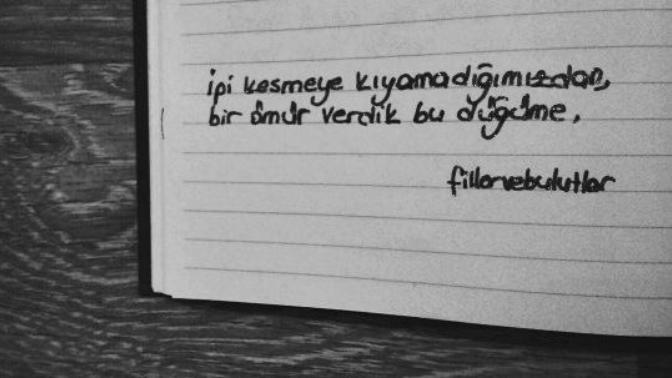 ipi kesmeye kıyamadığımızdan,
bir ömür verdik bu düğüme,
fillervebulutlar